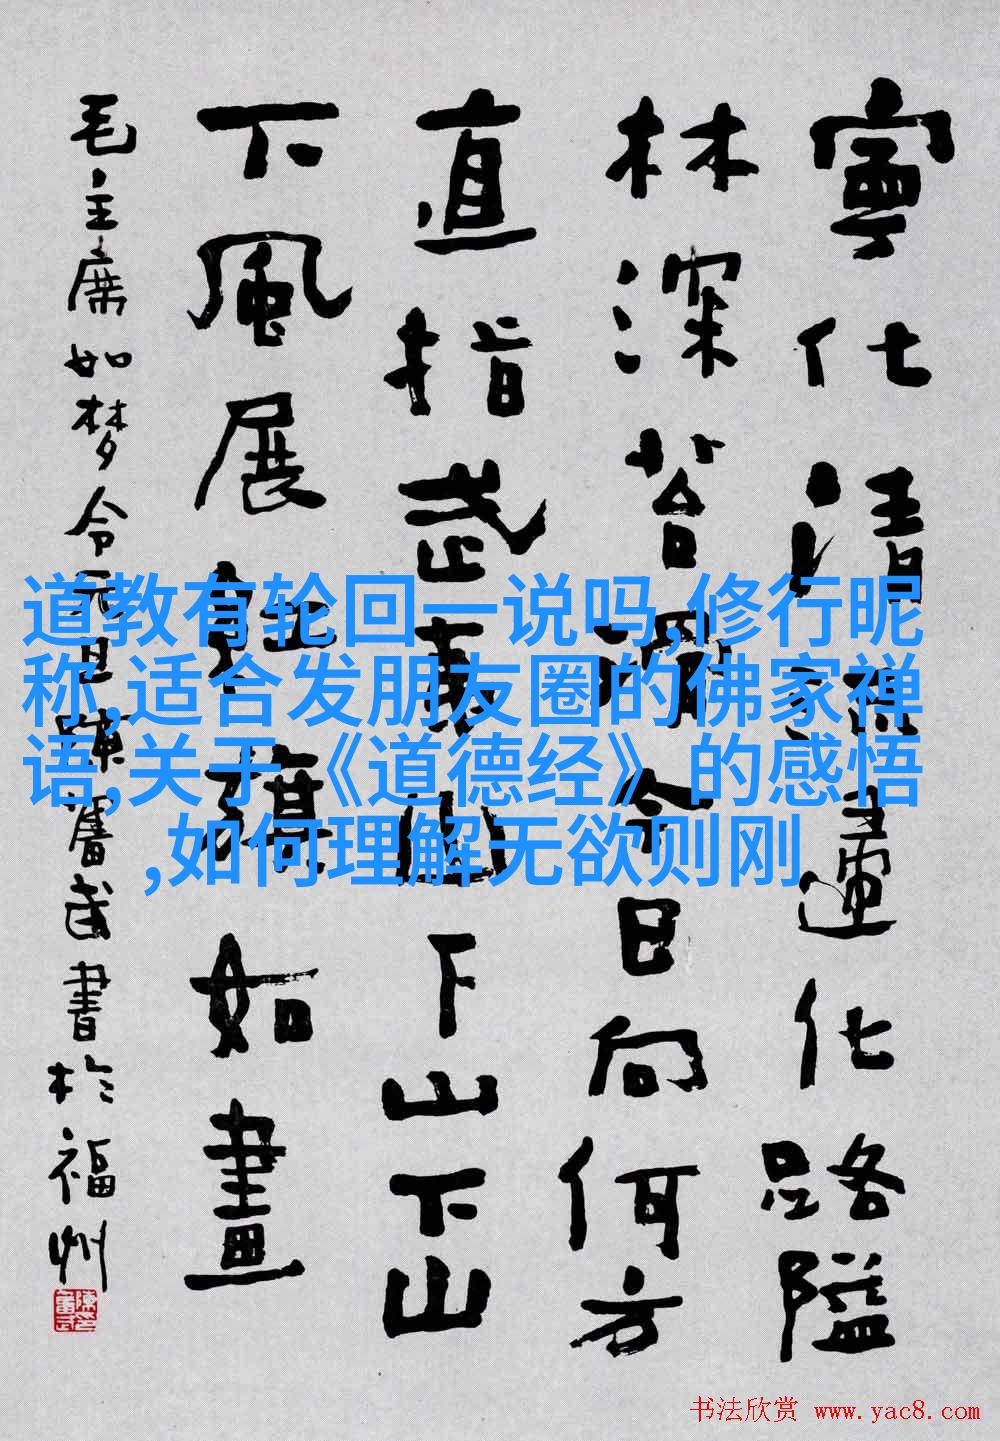 寧化清流化路隘
林深苔滑今日向何方
直指武夷山下山下山
下風展紅旗如畫
毛主席如梦令元旦陳奮武書於福州
道教有轮回一说吗,修行昵
称,适合发朋友圈的佛家禅
语,关于《道德经》的感悟
,如何理解无欲则刚
书法欣赏 www.yac8.com